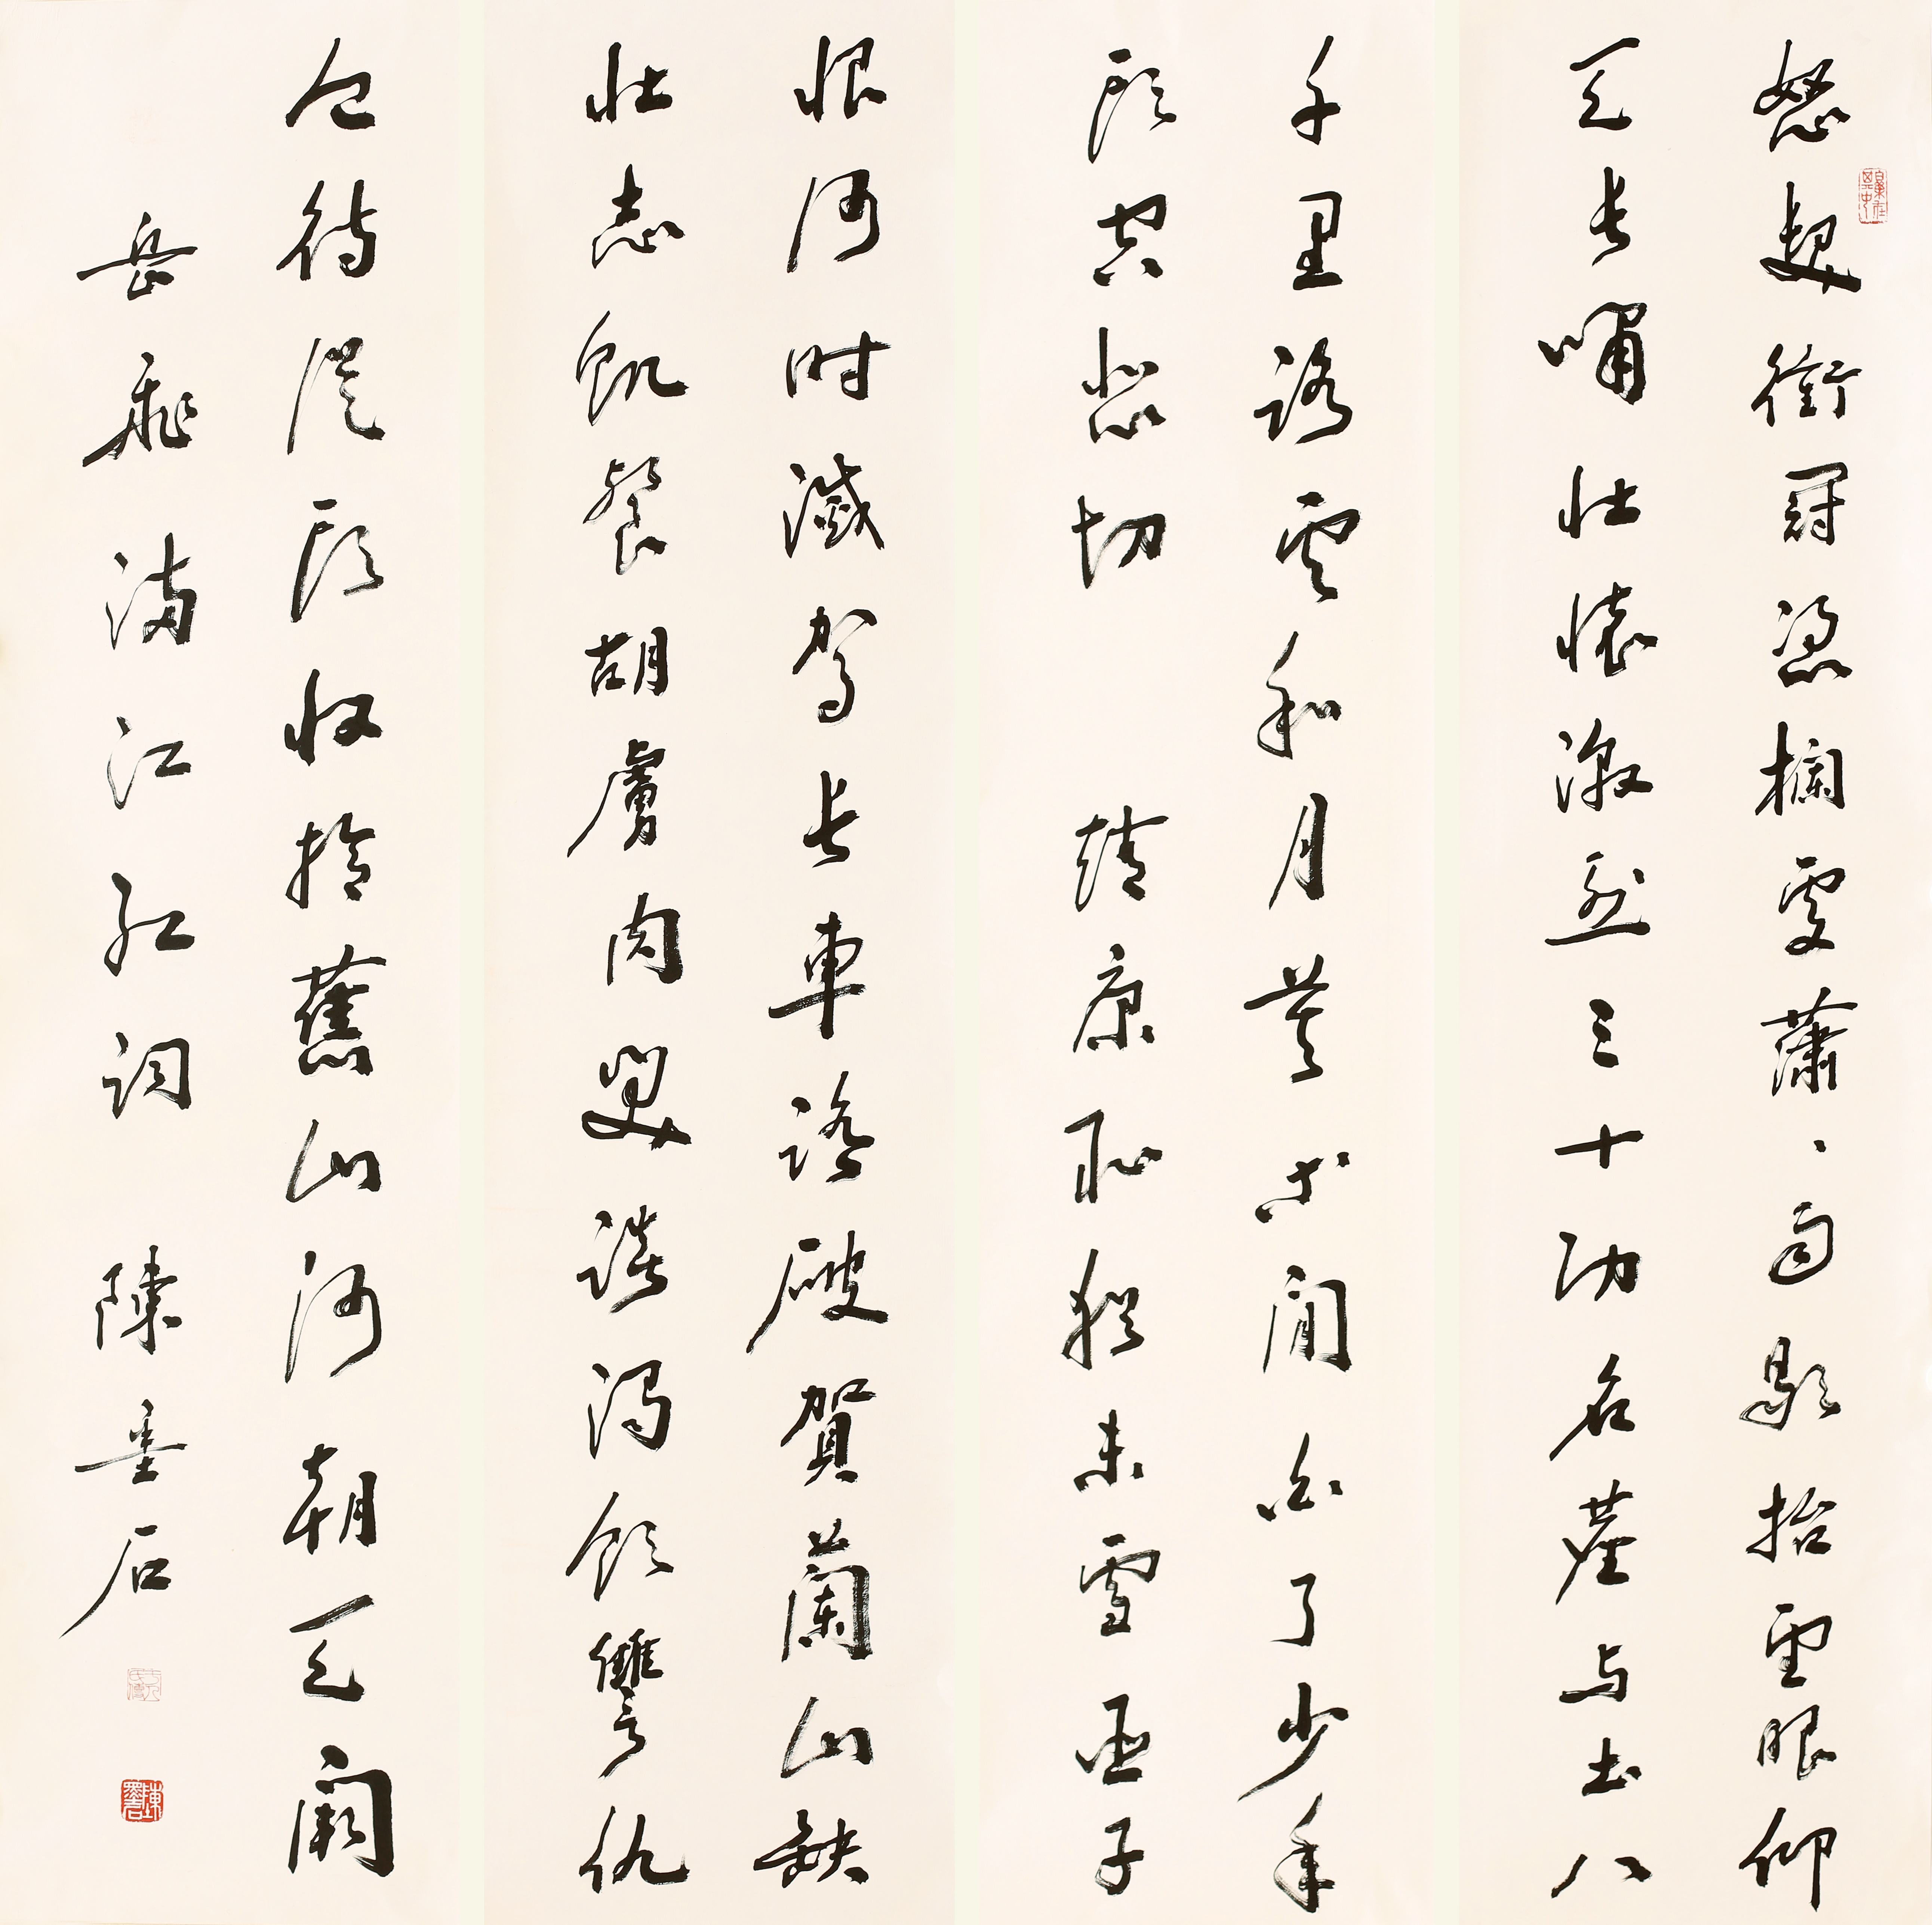 怒髮衝冠憑欄處瀟、雨歇抬望眼仰
天長嘯壯懷激烈三十功名塵与土八
千里路雲和月莫等閒白了少年
頭空悲切 靖康恥猶未雪臣子
恨何時滅駕長車踏破賀蘭山缺
壯志飢餐胡虜肉笑談渴飲讐仇
血待從頭收拾舊山河朝天闕
岳飛滿江紅詞 陳墨石